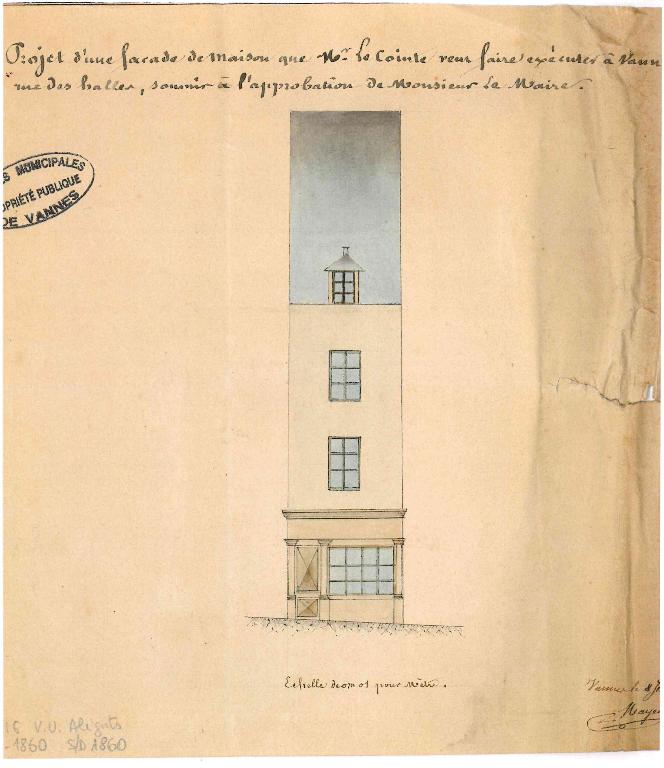 Projet d'une façade de Maison que Mr Le Cointe veut faire exécuter à Vann
rue des halles, soumis à l'approbation de Monsieur Le Maire.
S MUNICIPALES
OPRIÉTÉ PUBLIQUE
DE VANNES
Echelle de 0m 01 pour Mètre.
Vannes le 8
Maye
V.U. Aligts
-1860 S/D 1860